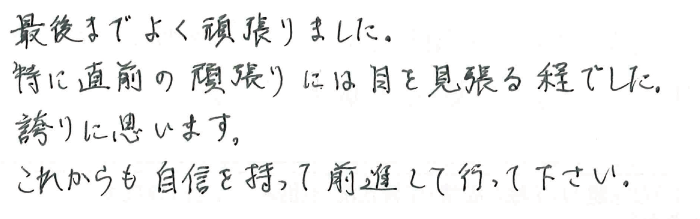 最後までよく頑張りました。
特に直前の頑張りには目を見張る程でした。
誇りに思います。
これからも自信を持って前進して行って下さい。